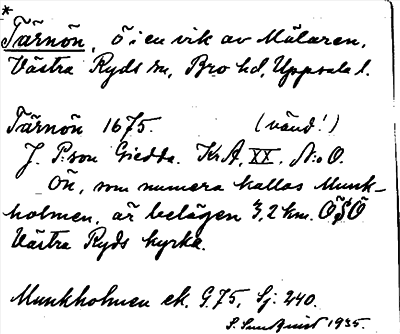 *
Tärnön, ö i en vik av Mälaren,
Västra Ryds sn, Bro hd, Uppsala l.
Tärnön 1675. (vänd!)
J. P:son Giedda. KrA, XX, N:o 0.
Ön, som numera kallas Munk-
holmen, är belägen 3,2 km. ÖSÖ
Västra Ryds kyrka.
Munkholmen ek. G.75, Sj. 240.
S. Sundquist 1935.